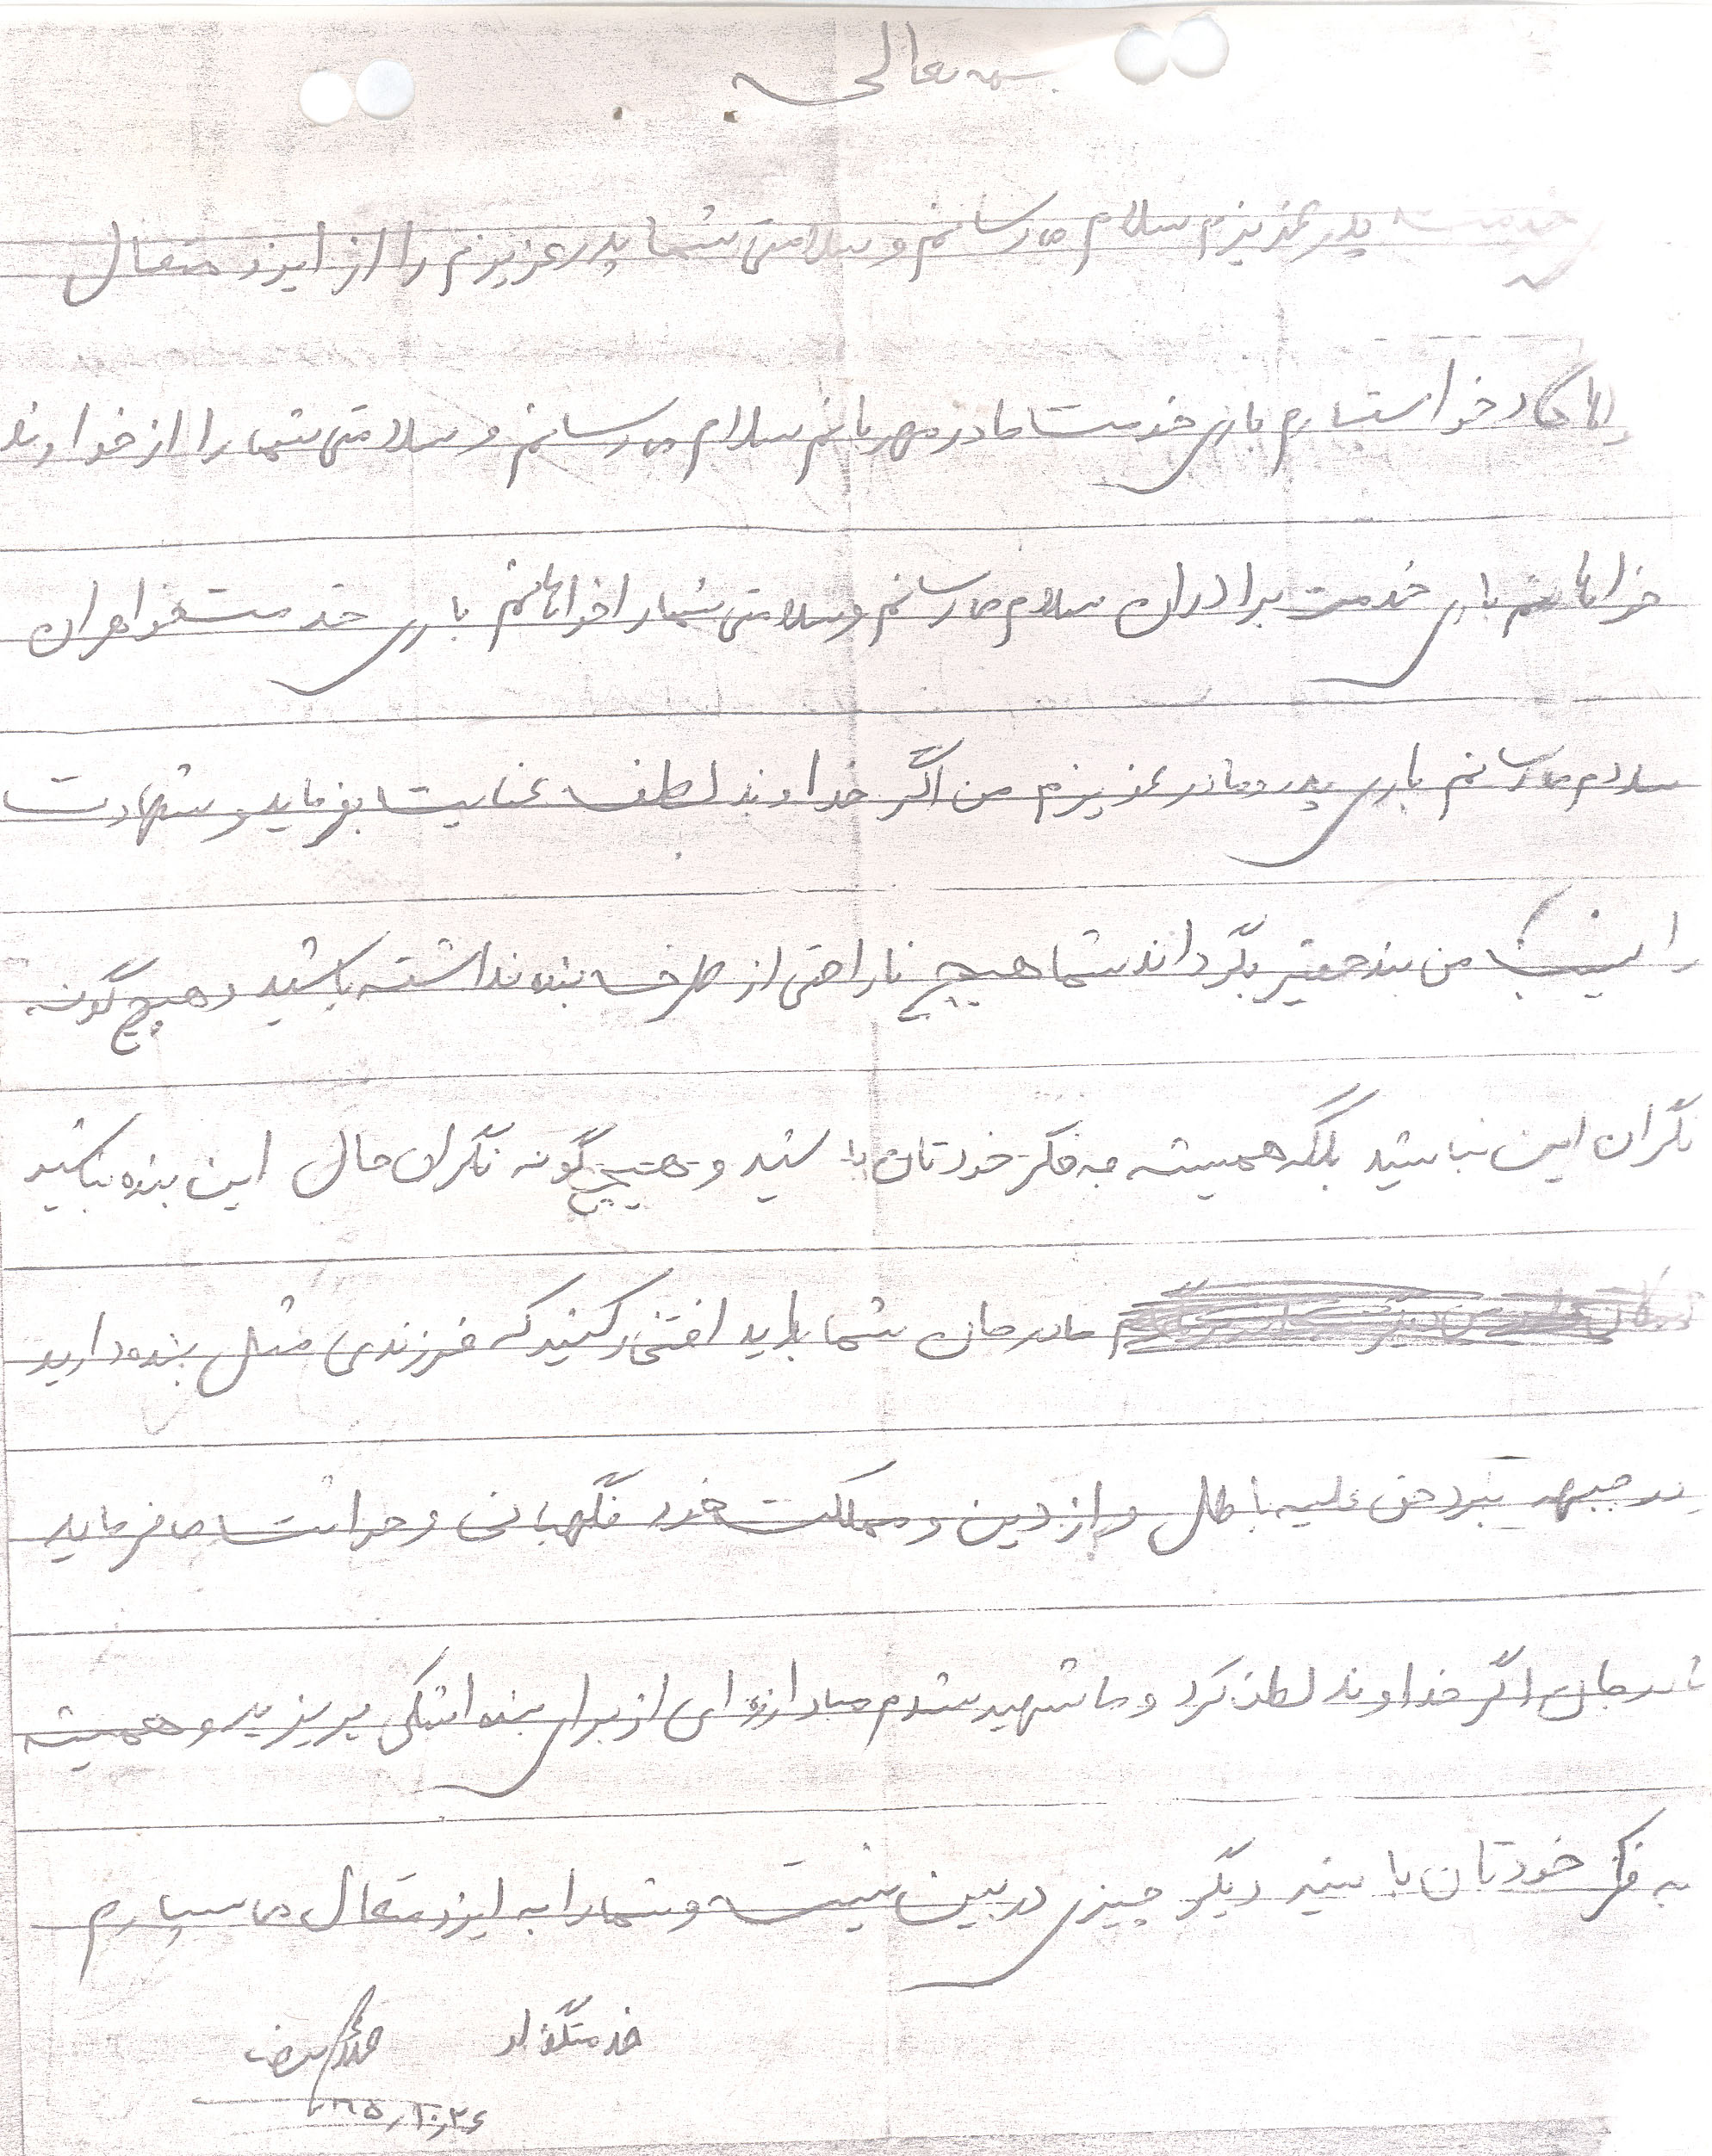 بسمه تعالی
خدمت پدر عزیزم سلام می رسانم و سلامتی شما پدر عزیزم را از ایزد متعال
خواستارم باری خدمت مادر مهربانم سلام می رسانم و سلامتی شما را از خداوند
خواهانم باری خدمت برادران سلام می رسانم و سلامتی شما را خواهانم باری خدمت خواهران
سلام می رسانم باری پدر و مادر عزیزم من اگر خداوند لطف عنایت بفرماید و شهادت
را نصیب من بنده حقیر بگرداند شما هیچ ناراحتی از طرف بنده نداشته باشید و هیچ گونه
نگران این نباشید بلکه همیشه به فکر خودتان باشید و هیچ گونه نگران حال این بنده نباشید
مادر جان شما باید افتخار کنید که فرزندی مثل بنده دارید
در جبهه نبرد حق علیه باطل و از دین و مملکت خود نگهبانی و حراست می فرماید
مادر جان اگر خداوند لطف کرد و ما شهید شدم مبادا ذره ای از برای بنده اشکی بریزید و همیشه
به فکر خودتان باشید دیگر چیزی در بین نیست و شما را به ایزد متعال می سپارم
خدمتگزار غلامرضا
۶۵/۱۰/۲۶